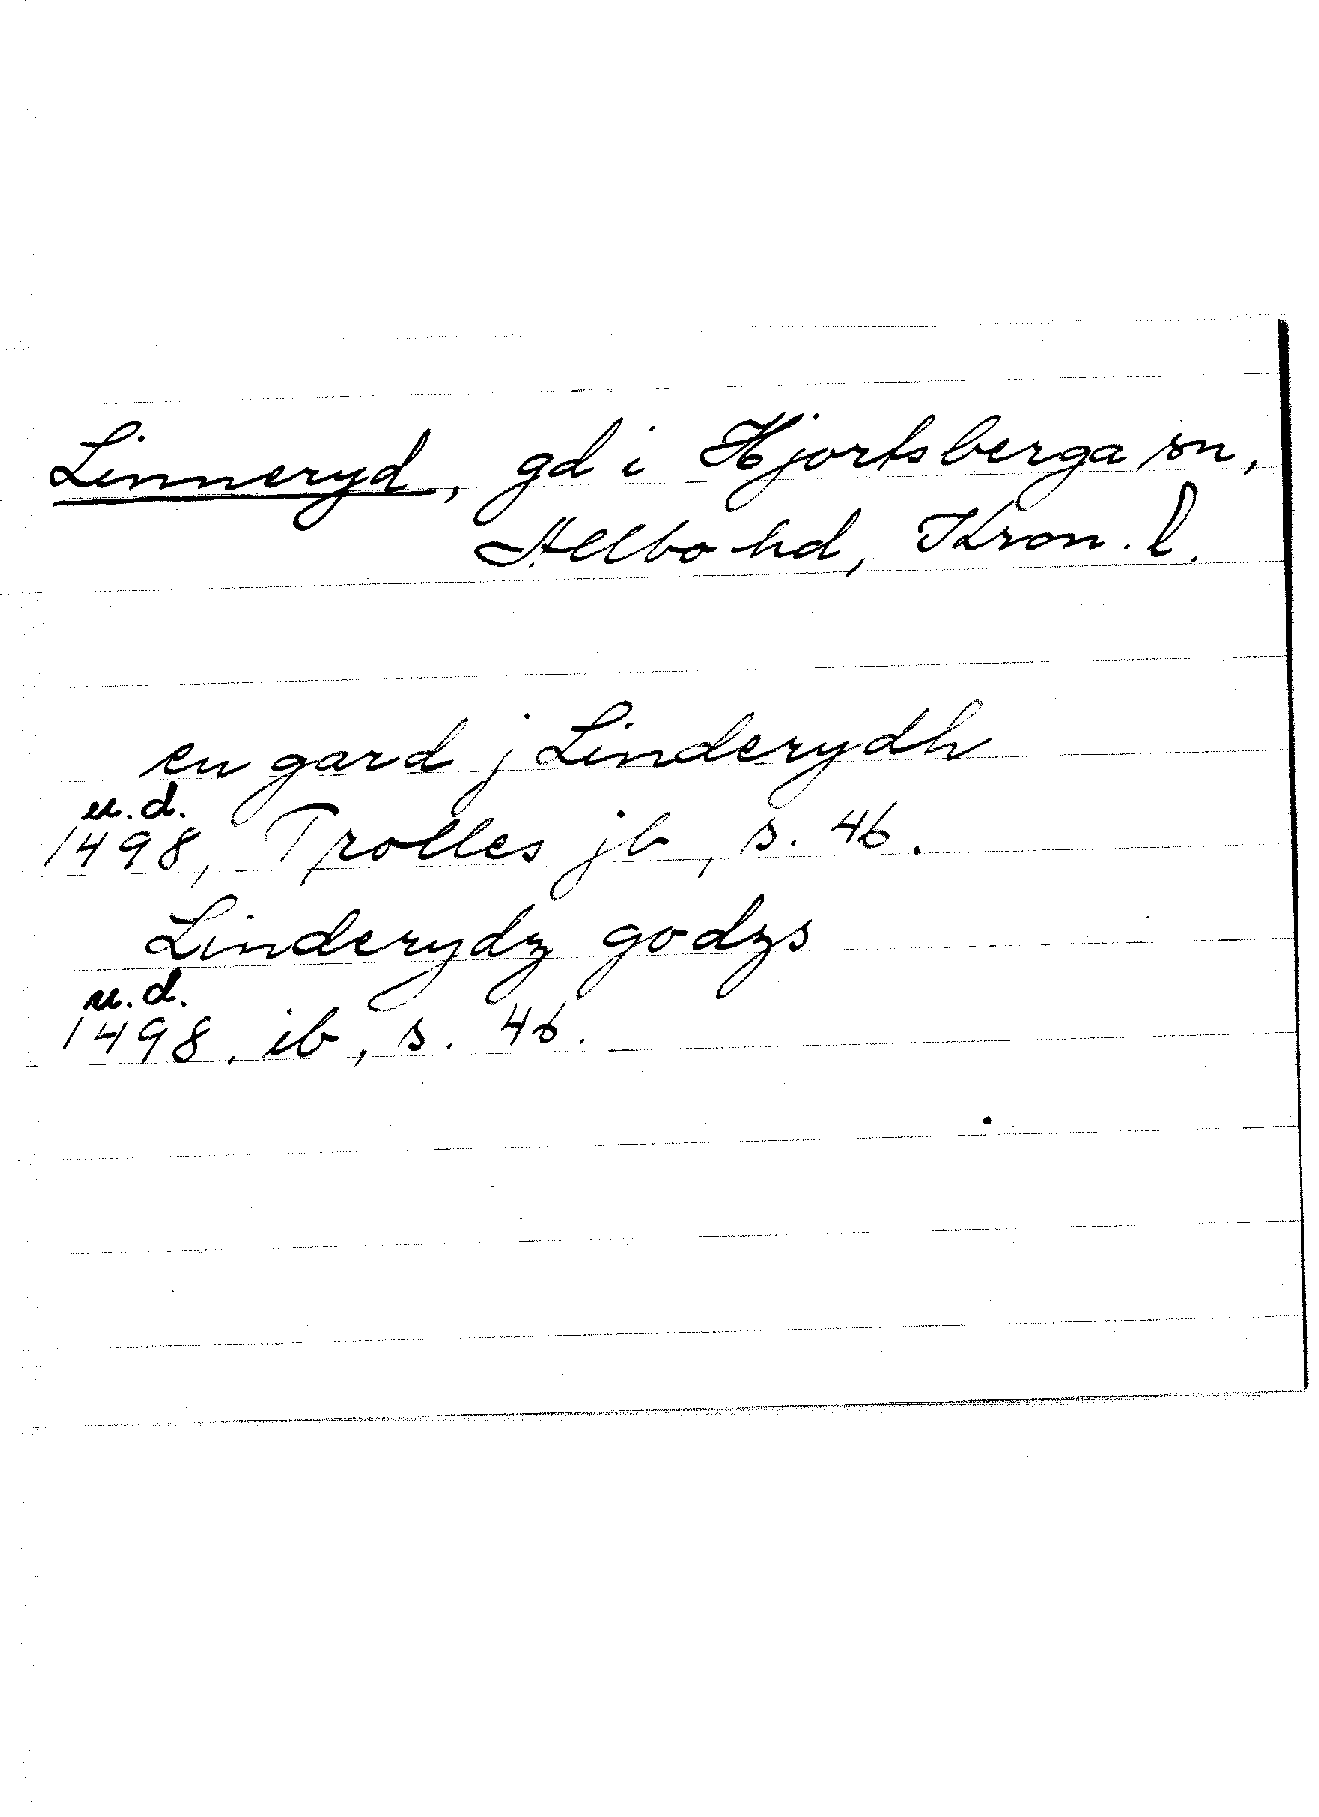 Linneryd, gd i Hjortsberga sn,
Allbo hd, Kron. l.
en gard j Linderydh
u.d.
1498, Trolles jb, s. 46.
Linderydz godzs
u.d.
1498, ib, s. 46.